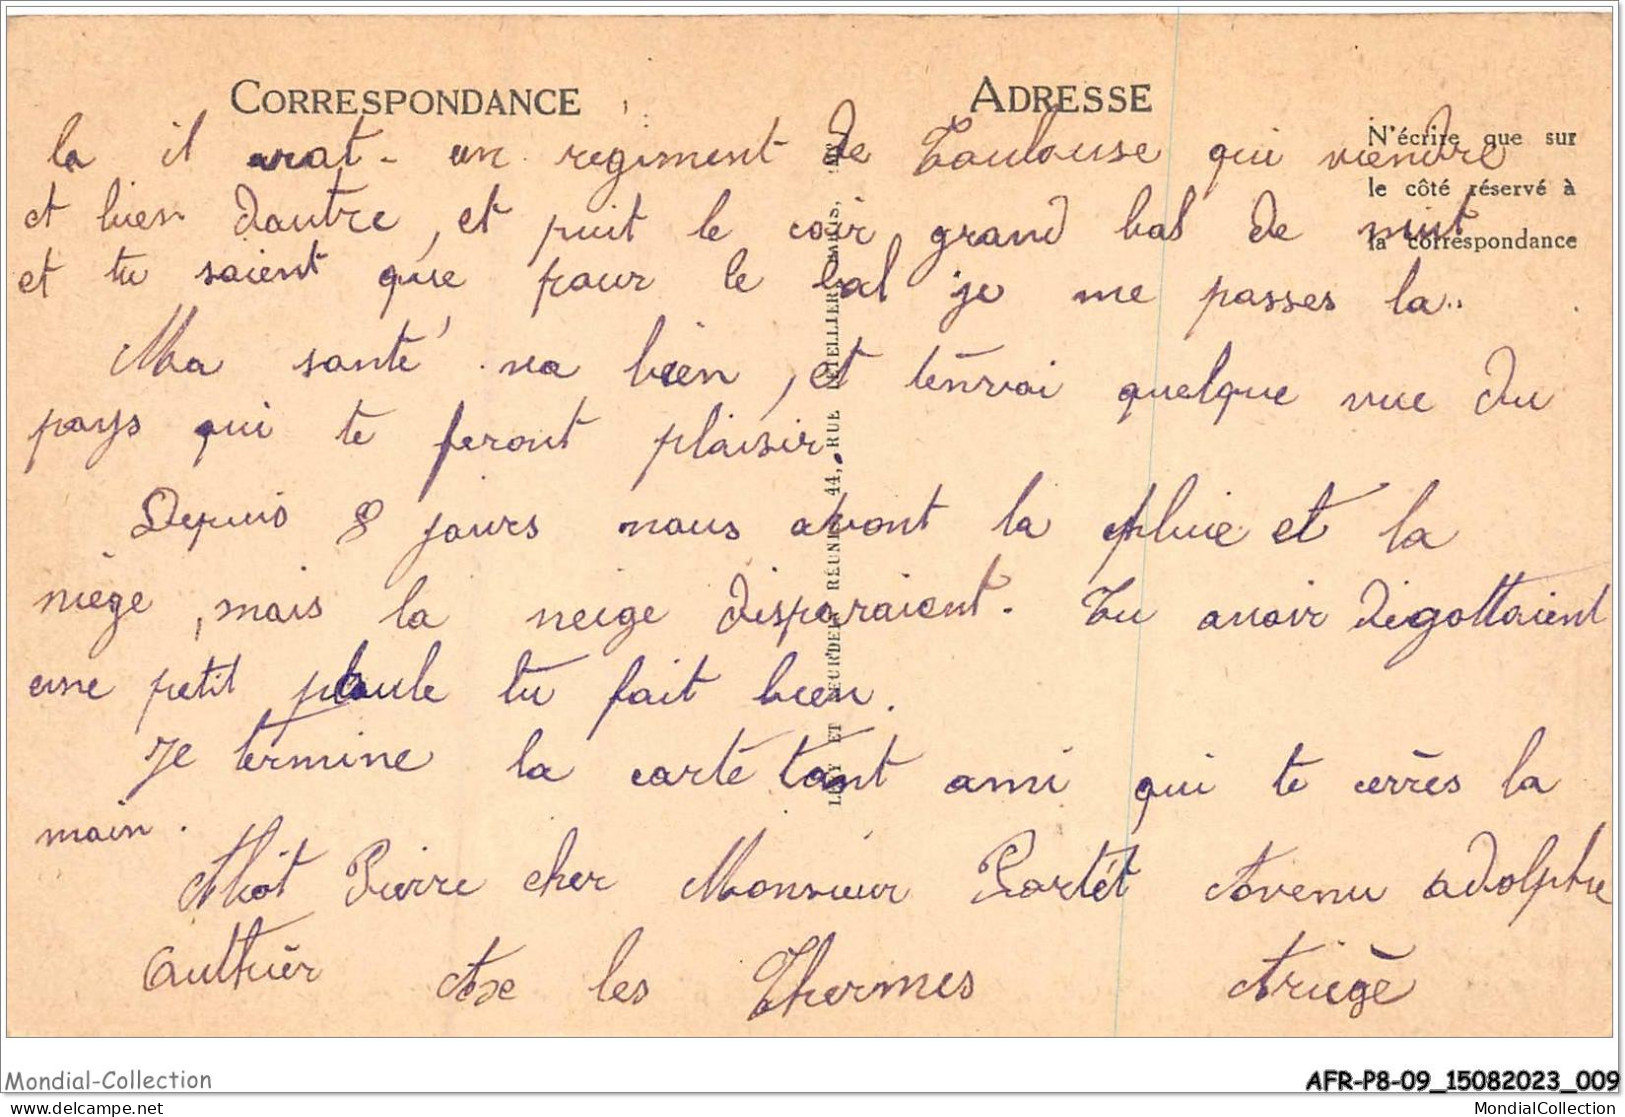 CORRESPONDANCE
ADRESSE
N'écrire que sur
le côté réservé à
la correspondance
la il urat - un regiment de Toulouse qui viendre
et bien dautre, et puit le coir grand bal de nuit
et tu saient que pour le bal je me passes la..
Ma santé va bien, et tenvoi quelque vue du
pays qui te feront plaisir.
Depuis 8 jours nous avont la pluie et la
niege, mais la neige disparaient. Tu avoir digottaient
une petit poule tu fait bien.
Je termine la carte tant ami qui te cerres la
main.
Pierre cher Monsieur Portét Avenu Adolphe
Authier Ax les Thermes Ariège
LÉVY ET NEURDEIN RÉUNIS, 44, RUE LETELLIER, PARIS,
Mondial-Collection
AFR-P8-09_15082023_009
mondial-collection.com
MondialCollection